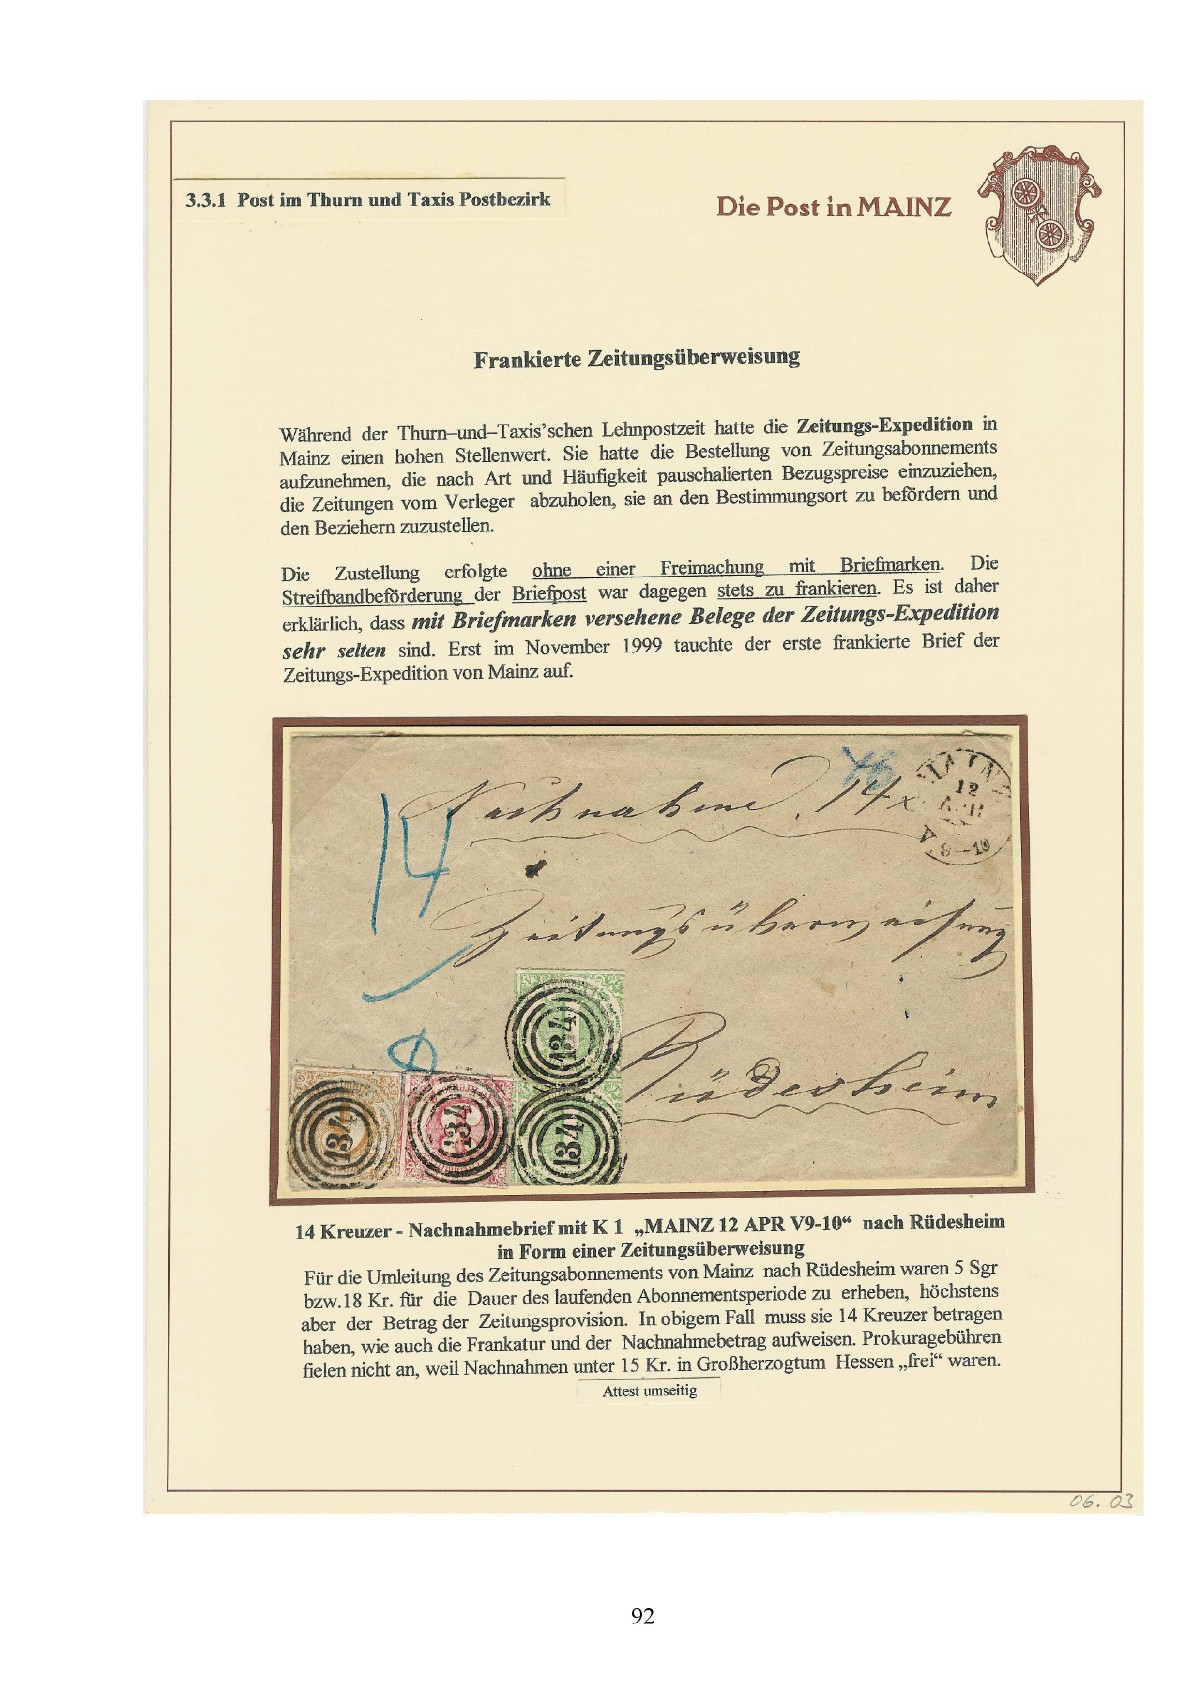 3.3.1 Post im Thurn und Taxis Postbezirk
Die Post in MAINZ
Frankierte Zeitungsüberweisung
Während der Thurn–und–Taxis'schen Lehnpostzeit hatte die Zeitungs-Expedition in
Mainz einen hohen Stellenwert. Sie hatte die Bestellung von Zeitungsabonnements
aufzunehmen, die nach Art und Häufigkeit pauschalierten Bezugspreise einzuziehen,
die Zeitungen vom Verleger abzuholen, sie an den Bestimmungsort zu befördern und
den Beziehern zuzustellen.
Die Zustellung erfolgte ohne einer Freimachung mit Briefmarken. Die
Streifbandbeförderung der Briefpost war dagegen stets zu frankieren. Es ist daher
erklärlich, dass mit Briefmarken versehene Belege der Zeitungs-Expedition
sehr selten sind. Erst im November 1999 tauchte der erste frankierte Brief der
Zeitungs-Expedition von Mainz auf.
Nachnahme 14 x
MAINZ
12
APR
V 9-10
14
Zeitungsüberweisung
Rüdesheim
134
134
134
134
14 Kreuzer - Nachnahmebrief mit K 1 „MAINZ 12 APR V9-10“ nach Rüdesheim
in Form einer Zeitungsüberweisung
Für die Umleitung des Zeitungsabonnements von Mainz nach Rüdesheim waren 5 Sgr
bzw.18 Kr. für die Dauer des laufenden Abonnementsperiode zu erheben, höchstens
aber der Betrag der Zeitungsprovision. In obigem Fall muss sie 14 Kreuzer betragen
haben, wie auch die Frankatur und der Nachnahmebetrag aufweisen. Prokuragebühren
fielen nicht an, weil Nachnahmen unter 15 Kr. in Großherzogtum Hessen „frei“ waren.
Attest umseitig
06.03
92